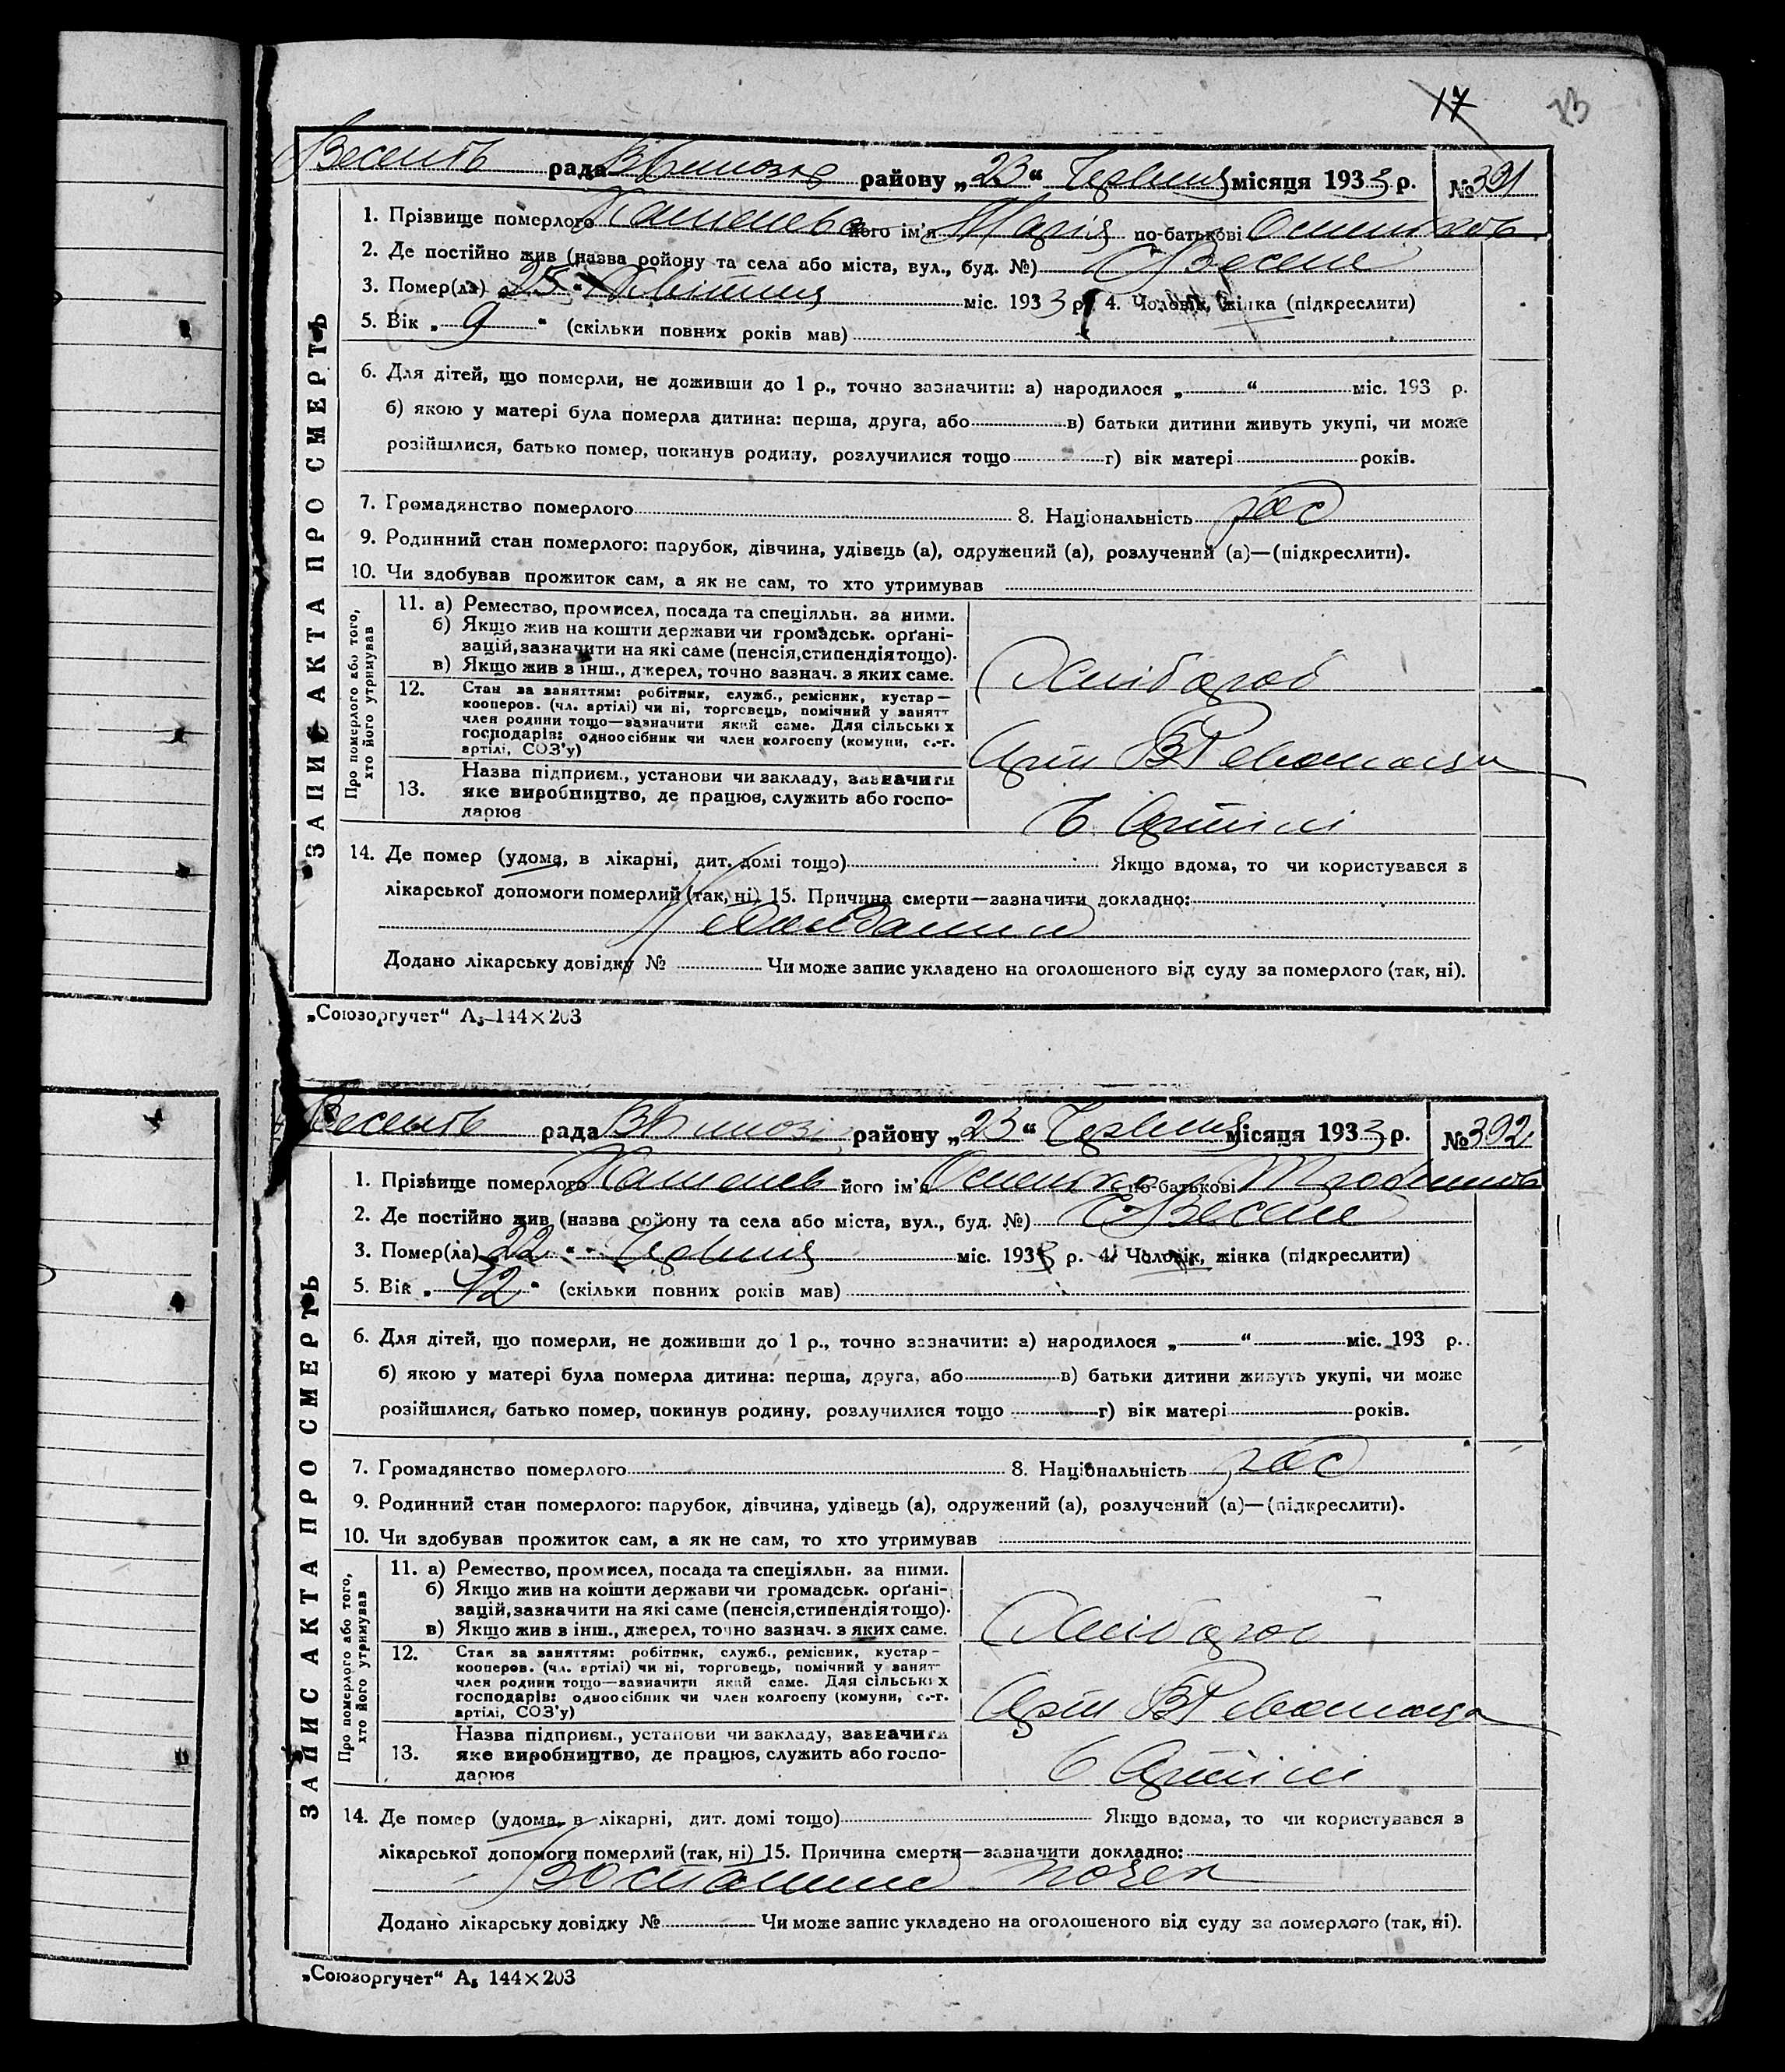 17 23
Весел рада району „23“ Червня місяця 1933 р. № 391
1. Прізвище померлого його ім'я Марія по-батькові
2. Де постійно жив (назва району та села або міста, вул., буд. №) с Веселе
3. Помер(ла) „25“ Квітния міс. 1933 р. 4. Чоловік, жінка (підкреслити)
5. Вік „9“ (скільки повних років мав)
6. Для дітей, що померли, не доживши до 1 р., точно зазначити: а) народилося „ “ міс. 193 р.
б) якою у матері була померла дитина: перша, друга, або в) батьки дитини живуть укупі, чи може
розійшлися, батько помер, покинув родину, розлучилися тощо г) вік матері років.
7. Громадянство померлого 8. Національність
9. Родинний стан померлого: парубок, дівчина, удівець (а), одружений (а), розлучений (а)—(підкреслити).
10. Чи здобував прожиток сам, а як не сам, то хто утримував
ЗАПИС АКТА ПРО СМЕРТЬ
Про померлого або того,
хто його утримував
11. а) Ремество, промисел, посада та спеціяльн. за ними.
б) Якщо жив на кошти держави чи громадськ. орґані-
зацій, зазначити на які саме (пенсія, стипендія тощо).
в) Якщо жив з інш., джерел, точно зазнач. з яких саме.
Хлібороб
12. Стан за заняттям: робітник, служб., ремісник, кустар—
кооперов. (чл. артілі) чи ні, торговець, помічний у занятт
член родини тощо—зазначити який саме. Для сільських
господарів: одноосібник чи член колгоспу (комуни, с.-г.
артілі, СОЗ'у)
13. Назва підприєм., установи чи закладу, зазначити
яке виробництво, де працює, служить або госпо-
дарює
в Артілі
14. Де помер (удома, в лікарні, дит. домі тощо) Якщо вдома, то чи користувався з
лікарської допомоги померлий (так, ні) 15. Причина смерти—зазначити докладно:
Додано лікарську довідку № Чи може запис укладено на оголошеного від суду за померлого (так, ні).
„Союзоргучет“ А₅ 144×203
Весел рада району „23“ Червня місяця 1933 р. № 392
1. Прізвище померлого його ім'я по-батькові
2. Де постійно жив (назва району та села або міста, вул., буд. №) с Веселе
3. Помер(ла) „22“ Червня міс. 1933 р. 4. Чоловік, жінка (підкреслити)
5. Вік „42“ (скільки повних років мав)
6. Для дітей, що померли, не доживши до 1 р., точно зазначити: а) народилося „ “ міс. 193 р.
б) якою у матері була померла дитина: перша, друга, або в) батьки дитини живуть укупі, чи може
розійшлися, батько помер, покинув родину, розлучилися тощо г) вік матері років.
7. Громадянство померлого 8. Національність
9. Родинний стан померлого: парубок, дівчина, удівець (а), одружений (а), розлучений (а)—(підкреслити).
10. Чи здобував прожиток сам, а як не сам, то хто утримував
ЗАПИС АКТА ПРО СМЕРТЬ
Про померлого або того,
хто його утримував
11. а) Ремество, промисел, посада та спеціяльн. за ними.
б) Якщо жив на кошти держави чи громадськ. орґані-
зацій, зазначити на які саме (пенсія, стипендія тощо).
в) Якщо жив з інш., джерел, точно зазнач. з яких саме.
Хлібороб
12. Стан за заняттям: робітник, служб., ремісник, кустар-
кооперов. (чл. артілі) чи ні, торговець, помічний у занят-
член родини тощо—зазначити який саме. Для сільських
господарів: одноосібник чи член колгоспу (комуни, с.-г.
артілі, СОЗ'у)
13. Назва підприєм., установи чи закладу, зазначити
яке виробництво, де працює, служить або госпо-
дарює
в Артілі
14. Де помер (удома, в лікарні, дит. домі тощо) Якщо вдома, то чи користувався з
лікарської допомоги померлий (так, ні) 15. Причина смерти—зазначити докладно:
почек
Додано лікарську довідку № Чи може запис укладено на оголошеного від суду за померлого (так, ні).
„Союзоргучет“ А₅ 144×203